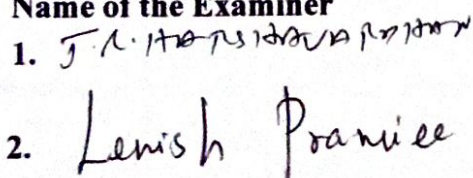 Name of the Examiner
1. J.R. HARSHAVARDHAN
2. Lenish Pramiee